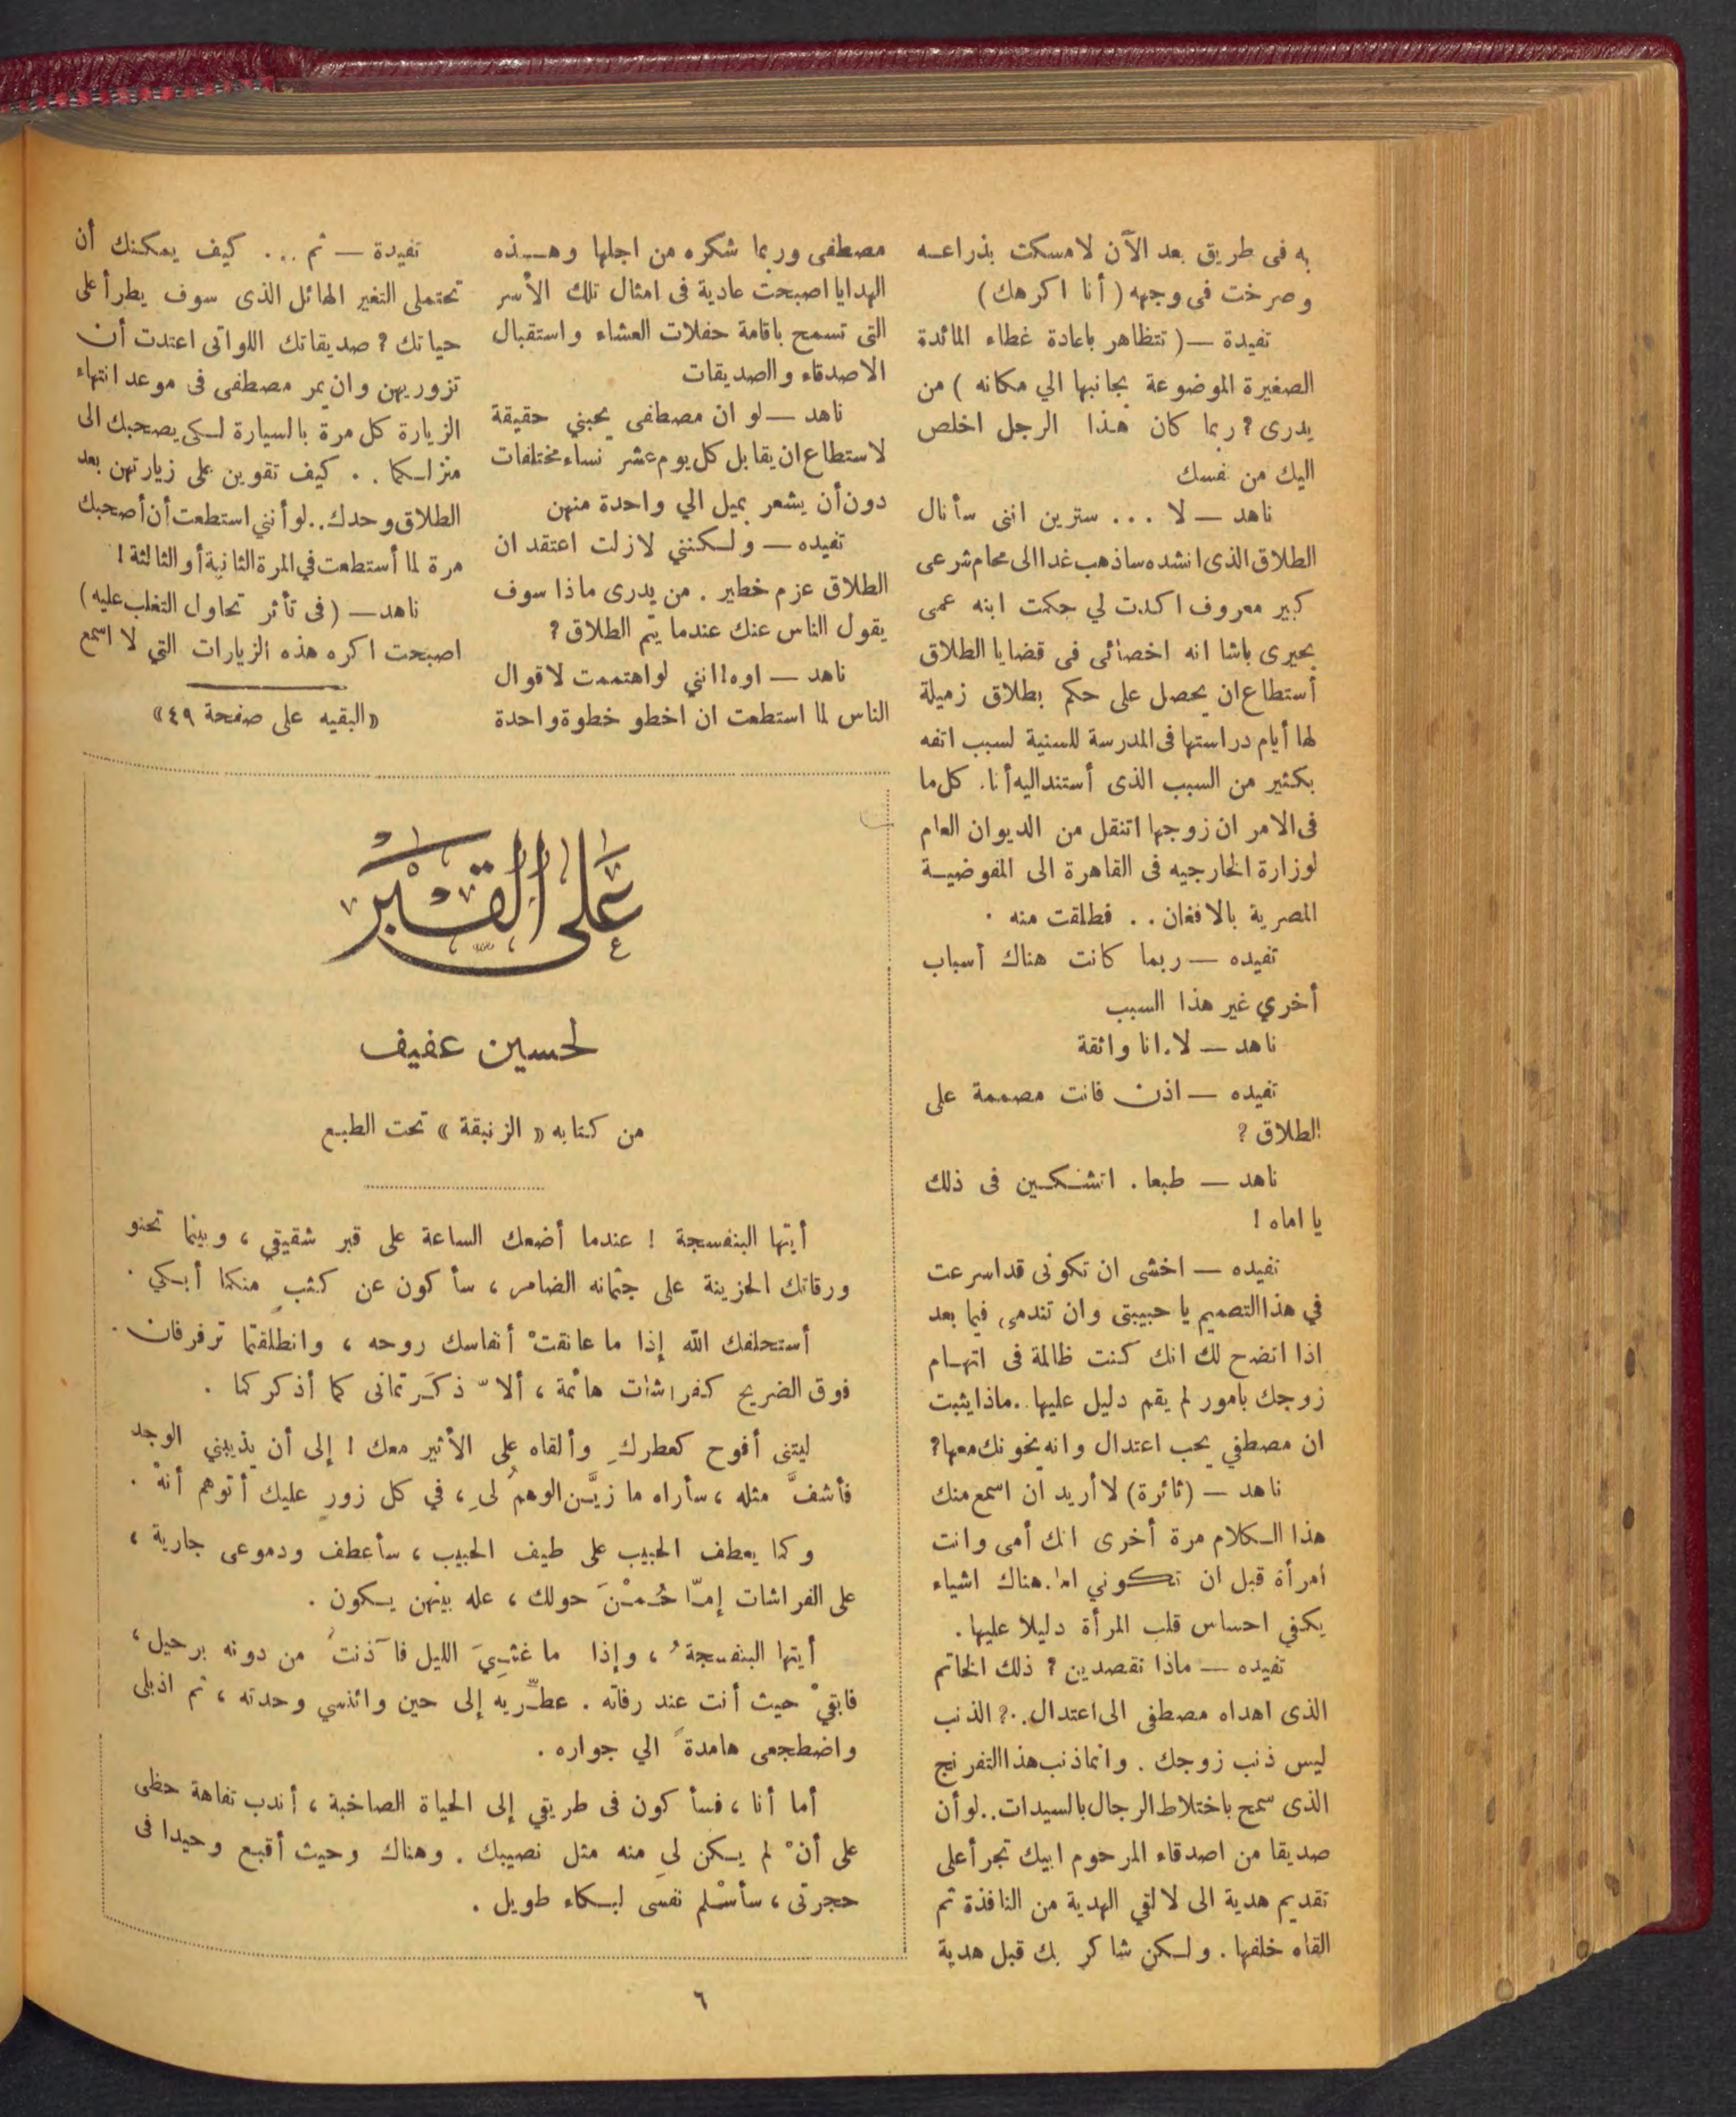 به فى طريق بعد الآن لامسكت بذراعه
وصرخت فى وجهه (أنا اكرهك)
تفيدة — (تتظاهر باعادة غطاء المائدة
الصغيرة الموضوعة بجانبها الي مكانه) من
يدرى؟ ربما كان هذا الرجل اخلص
اليك من نفسك
ناهد — لا ... سترين اننى سأنال
الطلاق الذى انشده ساذهب غدا الى محام شرعى
كبير معروف اكدت لي حكمت ابنه عمى
بحيرى باشا انه اخصائى فى قضايا الطلاق
أستطاع ان يحصل على حكم بطلاق زميلة
لها أيام دراستها فى المدرسة للسنية لسبب اتفه
بكثير من السبب الذى أستند اليه أنا. كل ما
فى الامر ان زوجها اتنقل من الديوان العام
لوزارة الخارجيه فى القاهرة الى المفوضية
المصرية بالافغان .. فطلقت منه .
تفيده — ربما كانت هناك أسباب
أخري غير هذا السبب
ناهد — لا. انا واثقة
تفيده — اذن فانت مصممة على
الطلاق؟
ناهد — طبعا. اتشكين فى ذلك
يا اماه!
تفيده — اخشى ان تكونى قد اسرعت
في هذا التصميم يا حبيبتى وان تندمى فيما بعد
اذا اتضح لك انك كنت ظالمة فى اتهام
زوجك بامور لم يقم دليل عليها.. ماذا يثبت
ان مصطفي يحب اعتدال وانه يخونك معها؟
ناهد — (ثائرة) لا أريد ان اسمع منك
هذا الكلام مرة أخرى انك أمى وانت
امرأة قبل ان تكوني اما. هناك اشياء
يكفي احساس قلب المرأة دليلا عليها.
تفيده — ماذا تقصدين؟ ذلك الخاتم
الذى اهداه مصطفى الى اعتدال.؟ الذنب
ليس ذنب زوجك. وانما ذنب هذا التفرنج
الذى سمح باختلاط الرجال بالسيدات.. لو أن
صديقا من اصدقاء المرحوم ابيك تجرأ على
تقديم هدية الى لا لقي الهدية من النافذة ثم
القاه خلفها. ولكن شاكر بك قبل هدية
مصطفى وربما شكره من اجلها وهذه
الهدايا اصبحت عادية فى امثال تلك الأسر
التى تسمح باقامة حفلات العشاء واستقبال
الاصدقاء والصديقات
ناهد — لو ان مصطفى يحبني حقيقة
لاستطاع ان يقابل كل يوم عشر نساء مختلفات
دون أن يشعر بميل الي واحدة منهن
تفيده — ولكنني لازلت اعتقد ان
الطلاق عزم خطير. من يدرى ماذا سوف
يقول الناس عنك عندما يتم الطلاق؟
ناهد — اوه! انني لو اهتممت لاقوال
الناس لما استطعت ان اخطو خطوة واحدة
تفيدة — ثم ... كيف يمكنك أن
تحتملى التغير الهائل الذى سوف يطرأ على
حياتك؟ صديقاتك اللواتى اعتدت أن
تزوريهن وان يمر مصطفى فى موعد انتهاء
الزيارة كل مرة بالسيارة لكى يصحبك الى
منزلكما .. كيف تقوين على زيارتهن بعد
الطلاق وحدك.. لو أنني استطعت أن أصحبك
مرة لما أستطعت في المرة الثانية أو الثالثة!
ناهد — (فى تأثر تحاول التغلب عليه)
اصبحت اكره هذه الزيارات التي لا اسمع
«البقيه على صفحة ٤٩»
عَلى القَبْر
لحسين عفيف
من كتابه «الزنبقة» تحت الطبع
أيتها البنفسجة! عندما أضعك الساعة على قبر شقيقي، وبينما تحنو
ورقاتك الحزينة على جثمانه الضامر، سأكون عن كثبٍ منكما أبكي.
أستحلفك الله إذا ما عانقتْ أنفاسك روحه، وانطلقتما ترفرفان
فوق الضريح كفراشات هائمة، ألاّ ذكَرتمانى كما أذكركما.
ليتنى أفوح كعطركِ وألقاه على الأثير معك! إلى أن يذيبني الوجد
فأشفَّ مثله، سأراه ما زيَّن الوهمُ لي، في كل زورٍ عليك أتوهم أنهْ.
وكما يعطف الحبيب على طيف الحبيب، سأعطف ودموعى جارية،
على الفراشات إمّا حُمْنَ حولك، عله بينهن يكون.
أيتها البنفسجةُ، وإذا ما غشِيَ الليل فآذنتُ من دونه برحيل،
فابقيْ حيث أنت عند رفاته. عطّريه إلى حين وائنسي وحدته، ثم اذبلى
واضطجعى هامدةً الي جواره.
أما أنا، فسأكون فى طريقي إلى الحياة الصاخبة، أندب تفاهة حظى
على أنْ لم يكن لي منه مثل نصيبك. وهناك وحيث أقبع وحيدا فى
حجرتى، سأسْلم نفسى لبكاء طويل.
٦